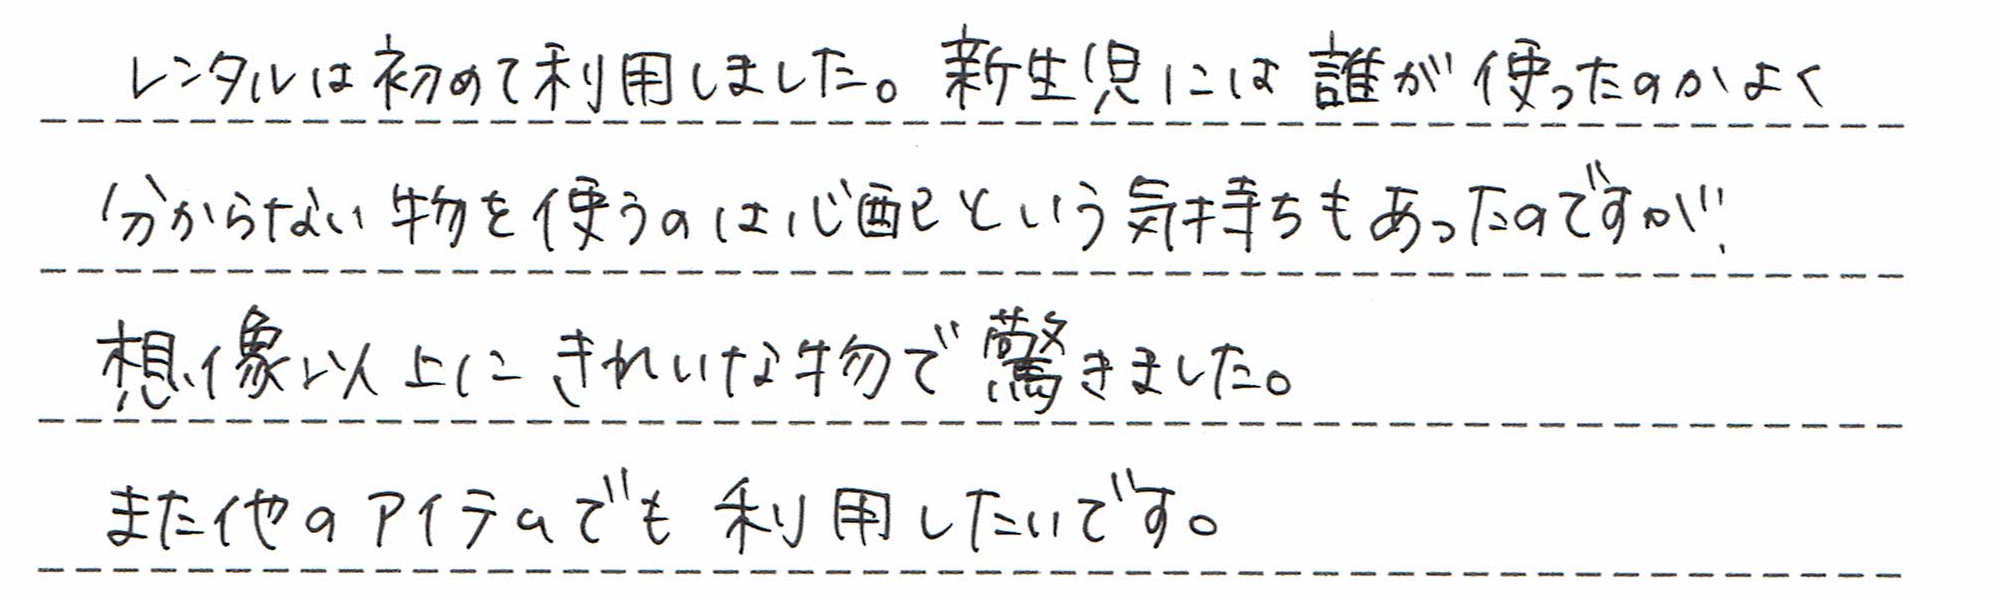 レンタルは初めて利用しました。新生児には誰が使ったのかよく
分からない物を使うのは心配という気持ちもあったのですが、
想像以上にきれいな物で驚きました。
また他のアイテムでも利用したいです。